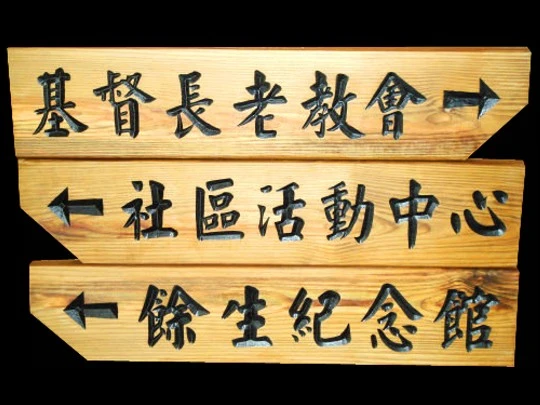 基督長老教會→
←社區活動中心
←餘生紀念館